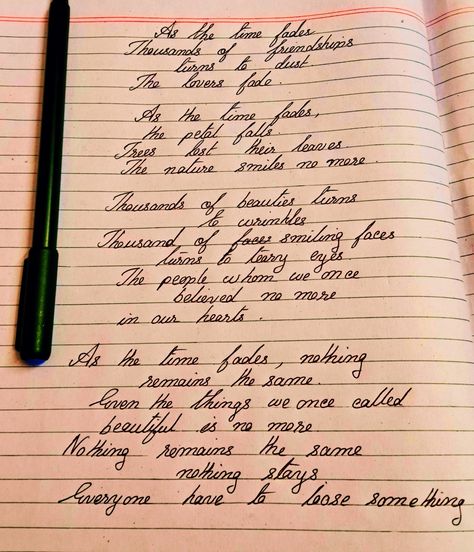 As the time fades
Thousands of friendships
turns to dust
The lovers fade
As the time fades,
the petal falls
Trees lost their leaves
The nature smiles no more.
Thousands of beauties turns
to wrinkles
Thousand of faces smiling faces
turns to teary eyes
The people whom we once
believed no more
in our hearts.
As the time fades, nothing
remains the same.
Even the things we once called
beautiful is no more
Nothing remains the same
nothing stays
Everyone have to loose something